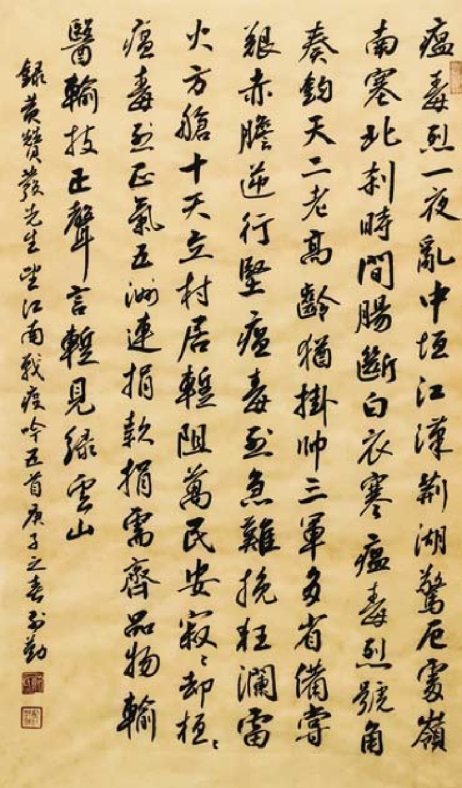 瘟毒烈一夜亂中垣江漢荊湖驚厄嶺
南塞北剎時間腸斷白衣寒瘟毒烈號角
奏鈞天二老高齡猶掛帥三軍多省備嘗
艱赤膽逆行堅瘟毒烈急難挽狂瀾雷
火方艙十天立村居暫阻萬民安寂〻却桓〻
瘟毒烈正氣五洲連捐款捐需齊品物輸
醫輸技正聲言暫見綠雲山
錄黃贊發先生望江南戰疫吟五首庚子之春勤